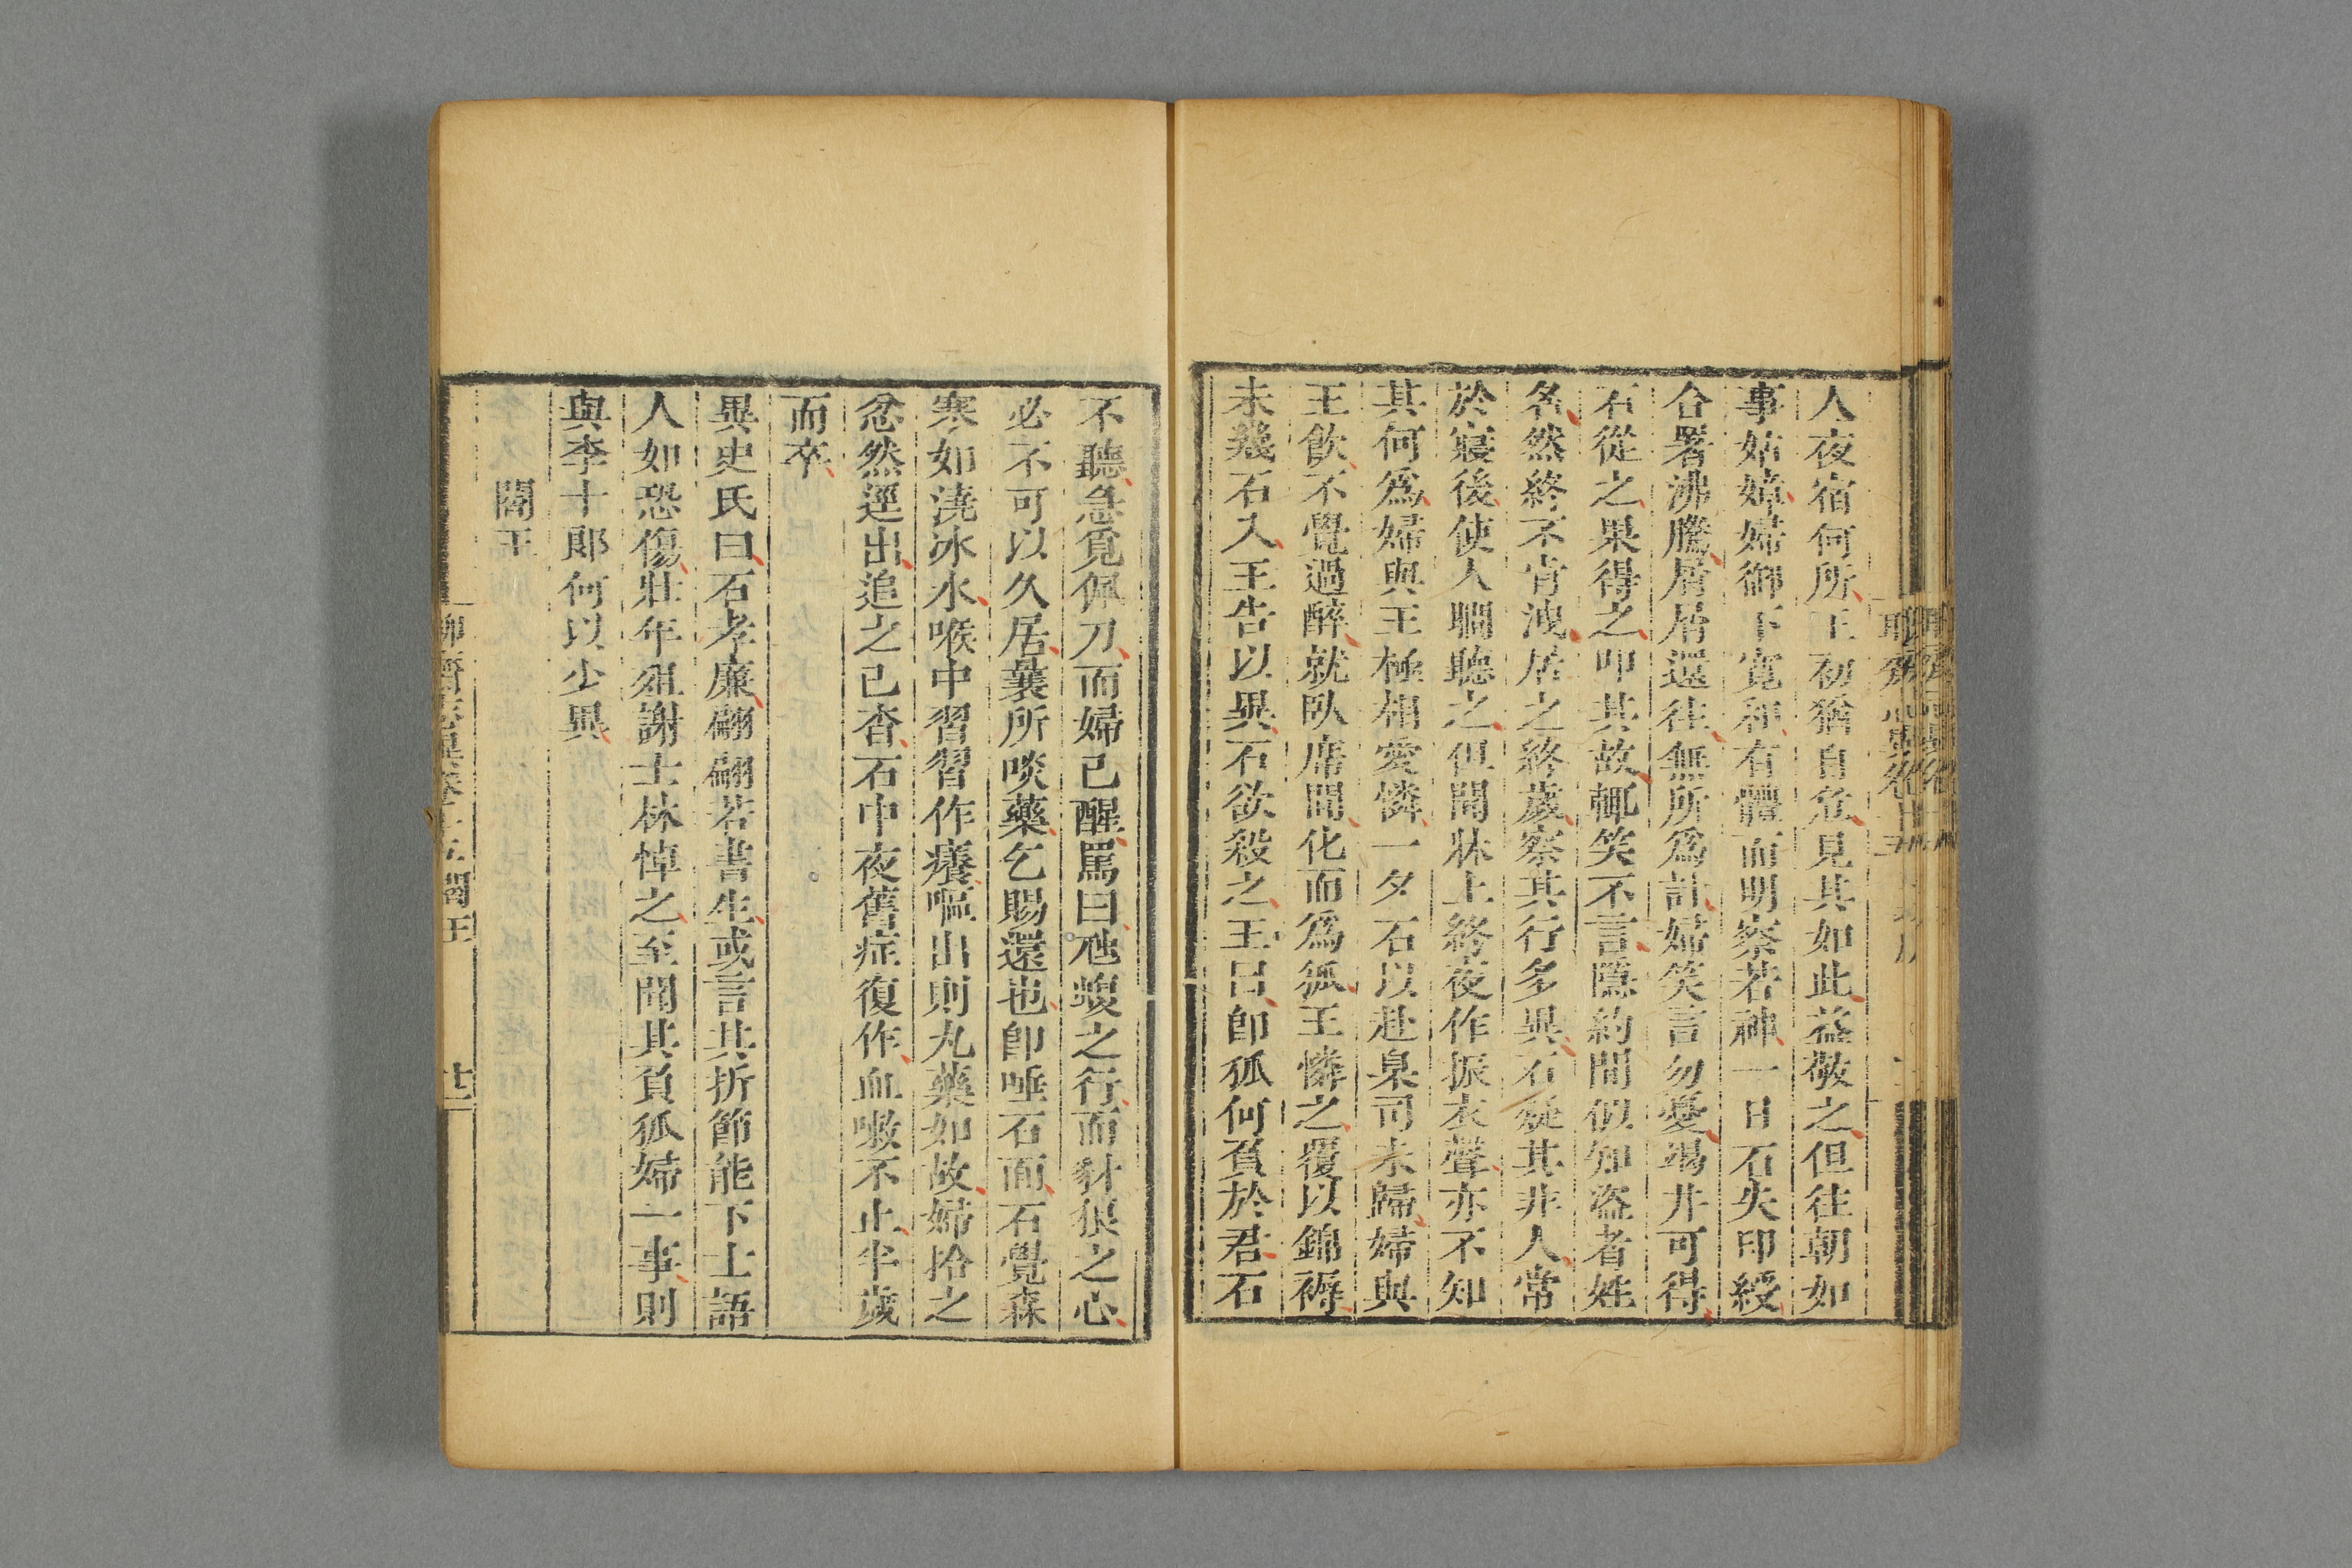 人夜宿何所王初猶自危見其如此益敬之但往朝如
事姑嫜婦御下寬和有體而明察若神一日石失印綬
合署沸騰屑屑還往無所爲計婦笑言勿憂竭井可得
石從之果得之叩其故輒笑不言隱約間似知盜者姓
名然終不肯洩居之終歲察其行多異石疑其非人常
於寢後使人瞷聽之但聞牀上終夜作振衣聲亦不知
其何爲婦與王極相愛憐一夕石以赴臬司未歸婦與
王飲不覺過醉就臥席間化而爲狐王憐之覆以錦褥
未幾石入王告以異石欲殺之王曰卽狐何負於君石
不聽急覓佩刀而婦已醒罵曰虺蝮之行而豺狼之心
必不可以久居曩所啖藥乞賜還也卽唾石面石覺森
寒如澆冰水喉中習習作癢嘔出則丸藥如故婦拾之
忿然逕出追之已杳石中夜舊症復作血嗽不止半歲
而卒
異史氏曰石孝廉翩翩若書生或言其折節能下士語
人如恐傷壯年殂謝士林悼之至聞其負狐婦一事則
與李十郎何以少異
閻王
聊齋志異卷十五 閻王 廿二